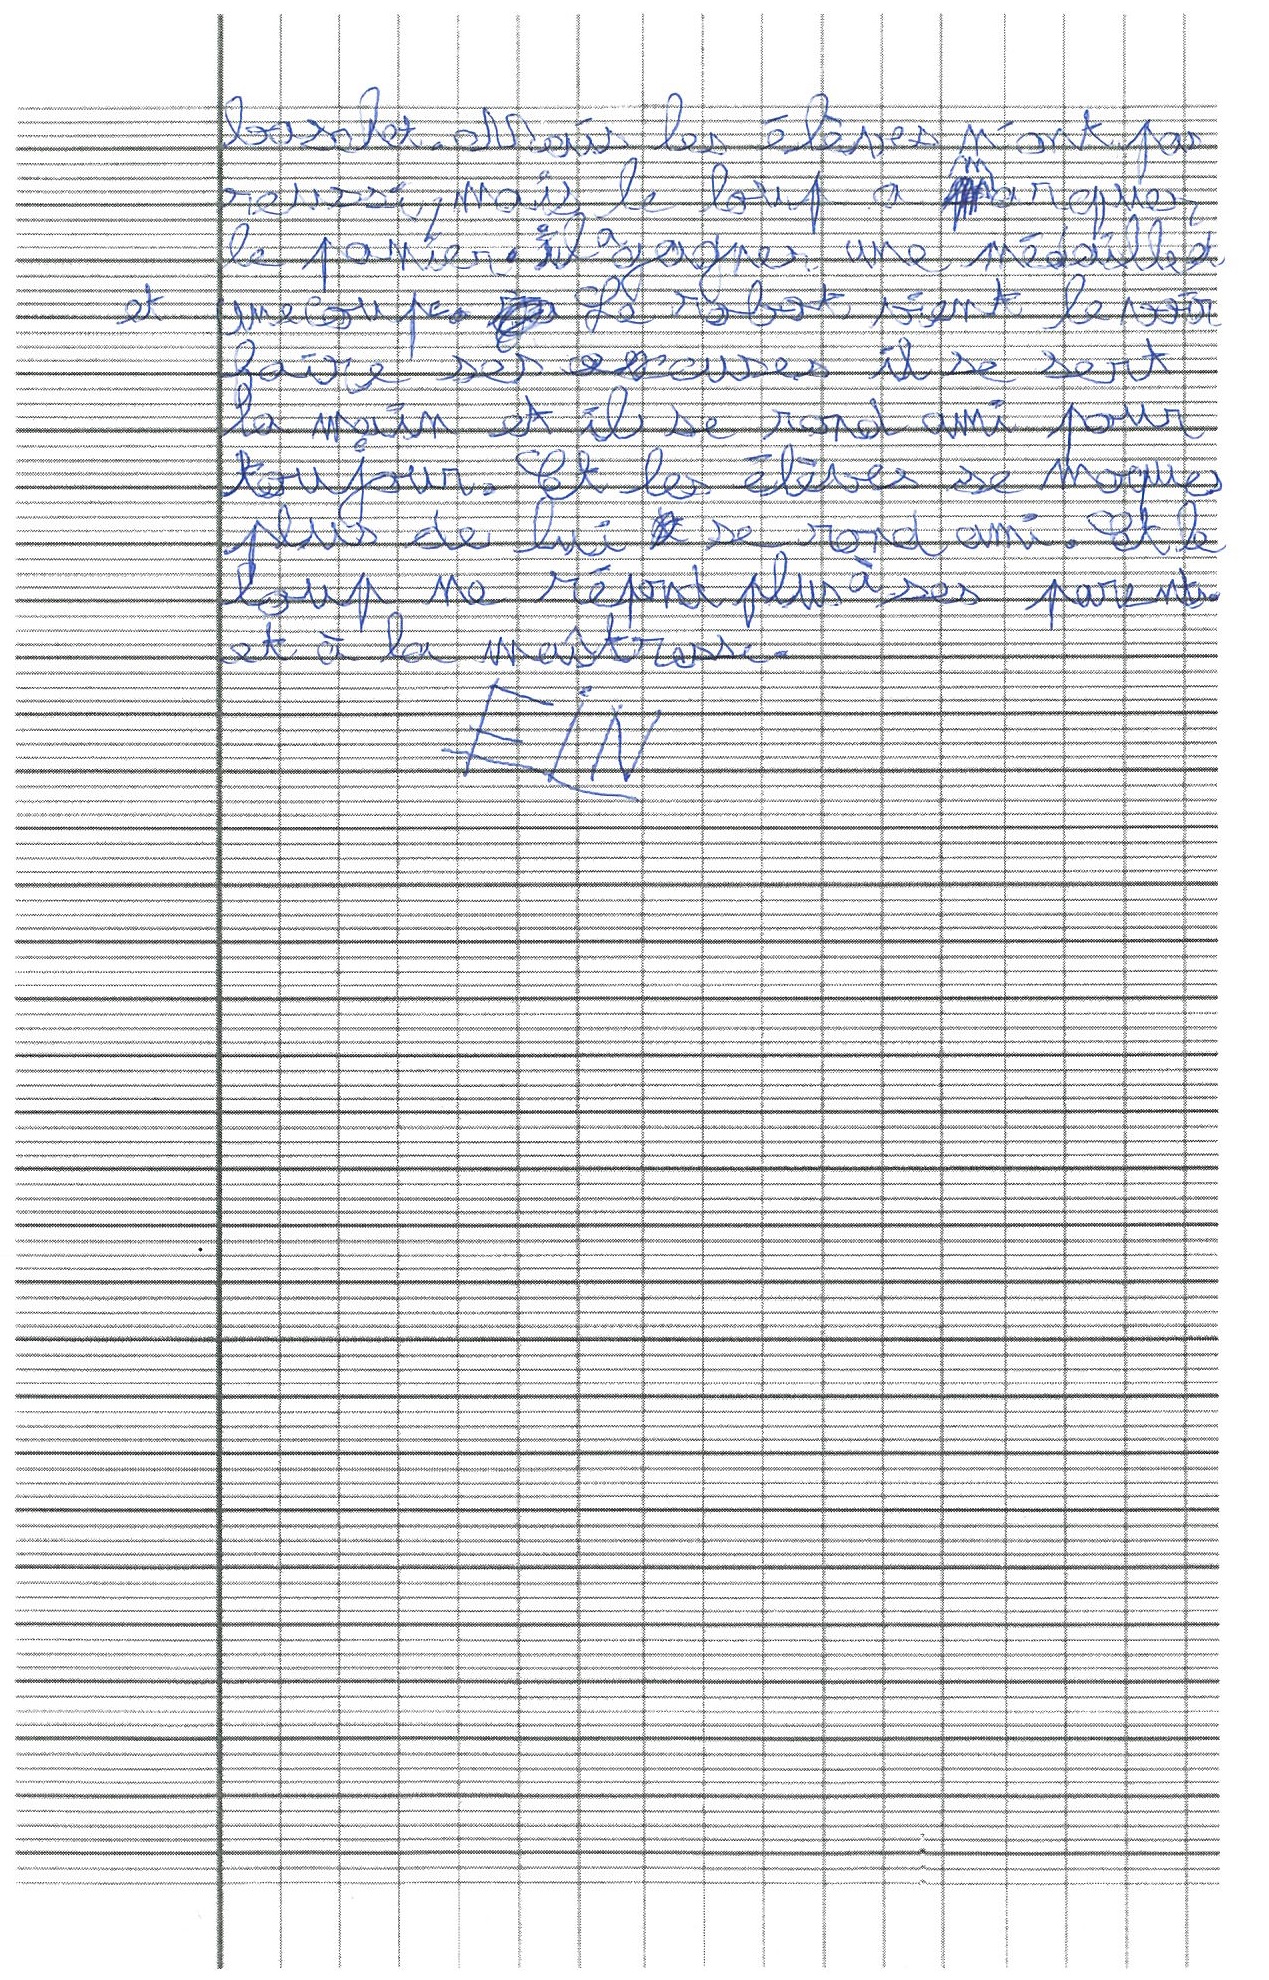 basket. Mais les élèves n'ont pas
reussi, mais le loup a marquer
le panier. il a gagner une médaille d
et une coupe. Le robot vient le voir
faire ses excuses il se sert
la main et il se rond ami pour
toujour. Et les élèves se moques
plus de lui se rond ami. Et le
loup ne répont plus à ses parents
et à la maîtresse.
FiN